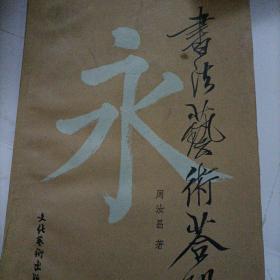 書法藝術答問
永
周汝昌 著
文化藝術出版